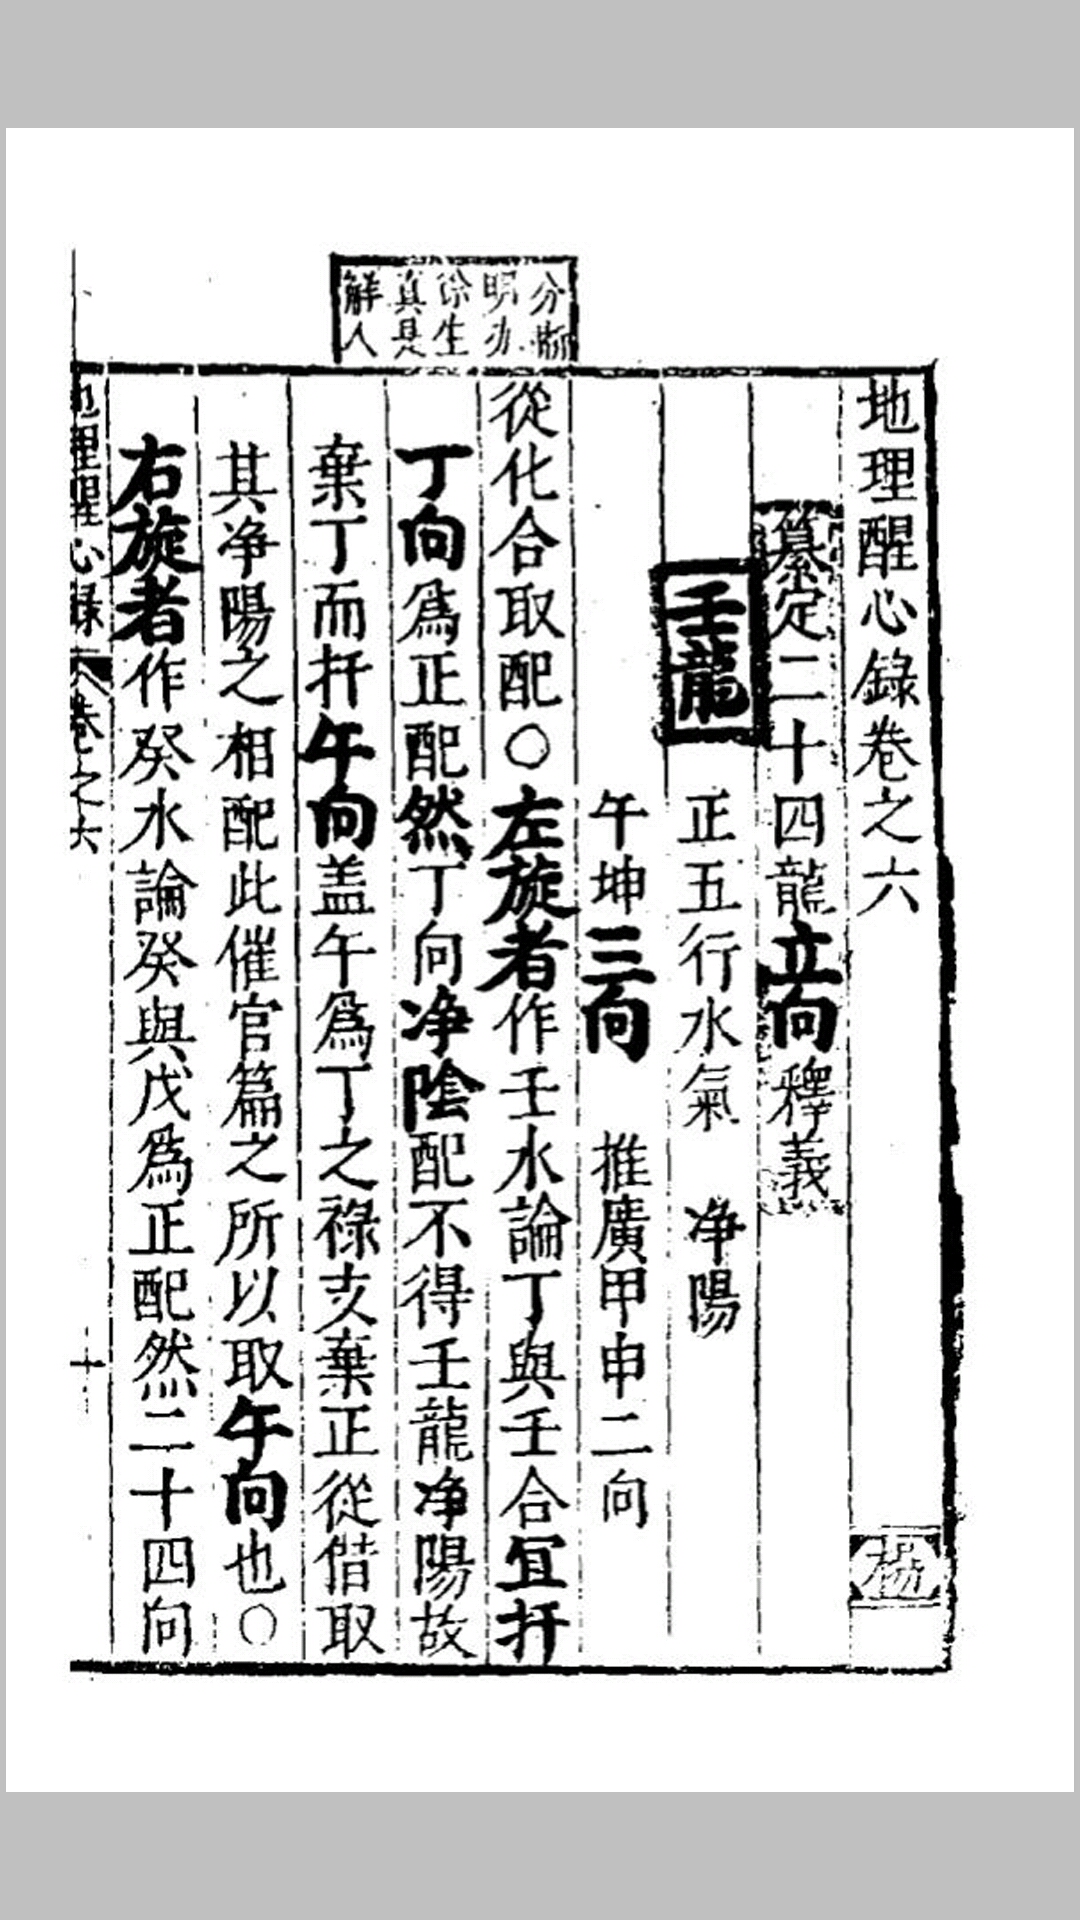 地理醒心錄卷之六
楊
纂定二十四龍立向釋義
壬龍 正五行水氣 净陽
午坤三向 推廣甲申二向
從化合取配○左旋者作壬水論丁與壬合宜扦
丁向爲正配然丁向净陰配不得壬龍净陽故
棄丁而扦午向盖午爲丁之祿支棄正從借取
其净陽之相配此催官篇之所以取午向也○
右旋者作癸水論癸與戊爲正配然二十四向
分晰
明亦
徐生
真是
解人
地理醒心錄
卷之六
十